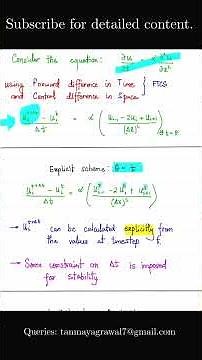 Subscribe for detailed content.
Consider the equation: ∂u/∂t = α ∂²u/∂x²
using Forward difference in Time } FTCS
and Central difference in Space
(uᵢ - uᵢ) / Δt = α (uᵢ₋₁ - 2uᵢ + uᵢ₊₁) / (Δx)²
Explicit scheme: θ = t
Δt = α (Δx)²
→ can be calculated explicitly from
the values at timestep t.
→ Some constraint on Δt is imposed
for stability
Queries: tanmayagrawal7@gmail.com